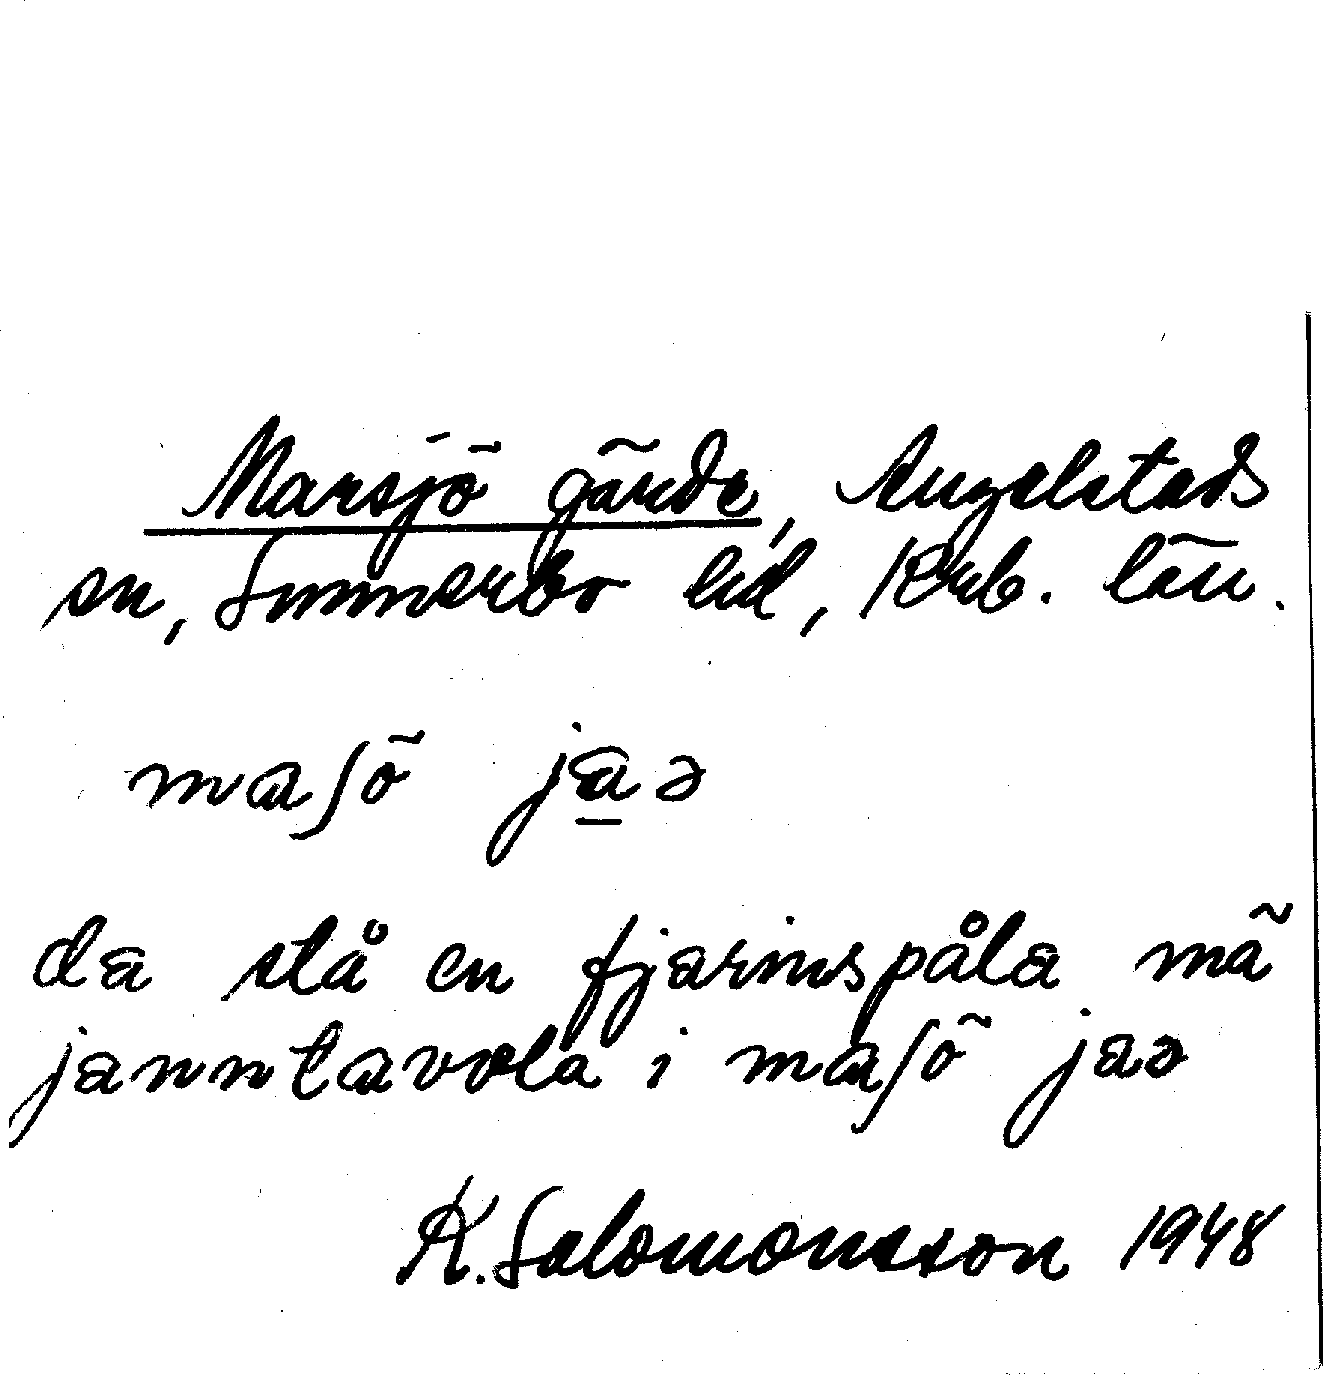 Marsjö gärde, Angelstads
sn, Sunnerbo hd, Krb. län.
maʃö jaə
da stå en fjarinspåla mä
janntavvla i maʃö jaə
K. Salomonsson 1948